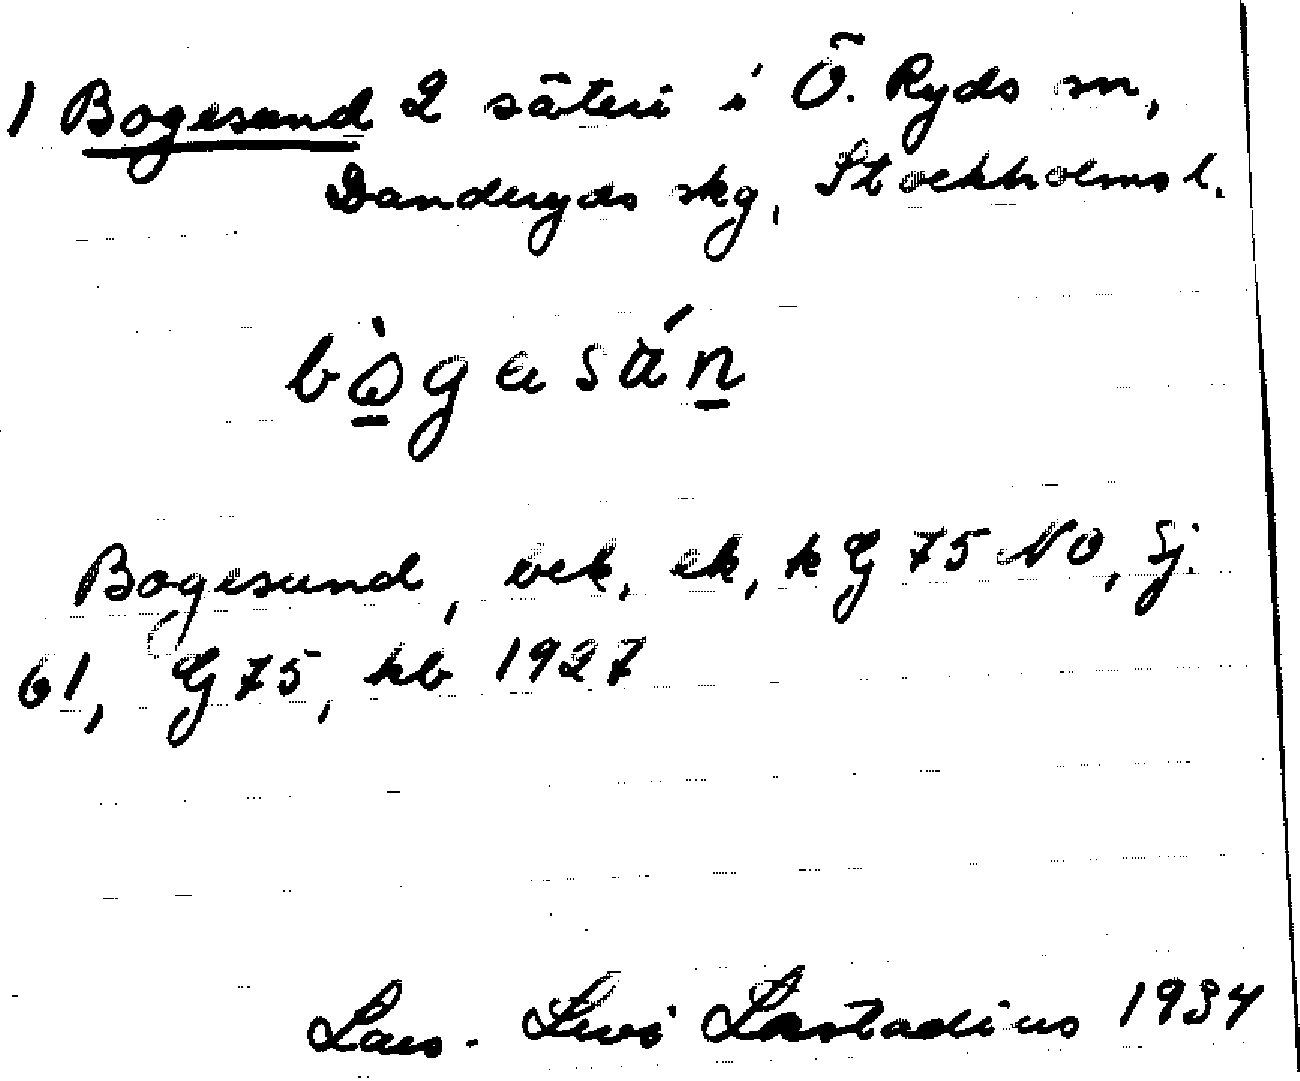 1 Bogesund 2 säteri i Ö. Ryds sn,
Danderyds skg, Stockholms l.
bo̱̊̀gesán̲
Bogesund, eck, ek, kG 75 NO, Sj.
61, G 75, kb 1927
Lars-Levi Læstadius 1934